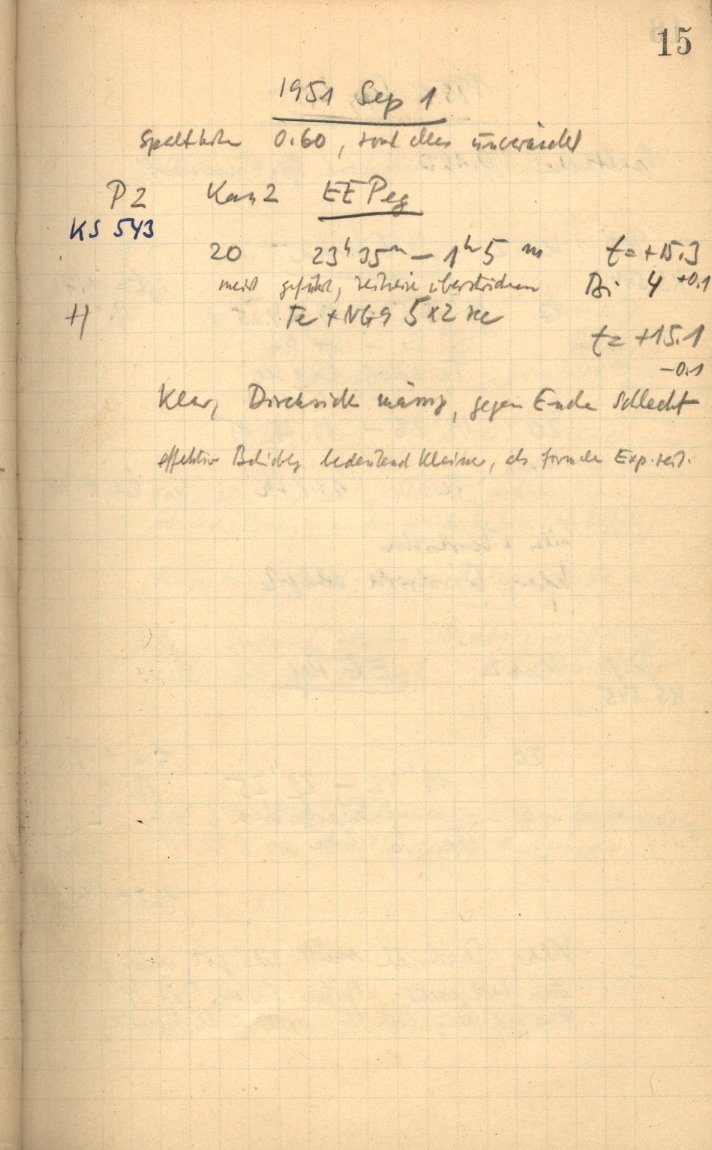 15
1951 Sep 1
Spalthöhe 0.60, sonst alles unverändert
P2 Kas 2 EE Peg
KS 543
20 23h 35m – 1h 5m t = +15.3
meist geführt, zeitweise überstrichen Bi 4 +0.1
H Te + NG9 5x2 sec
t = +15.1
-0.1
Klar, Durchsicht mässig, gegen Ende schlecht
effektive Belichtg bedeutend kleiner, als formale Exp.zeit.